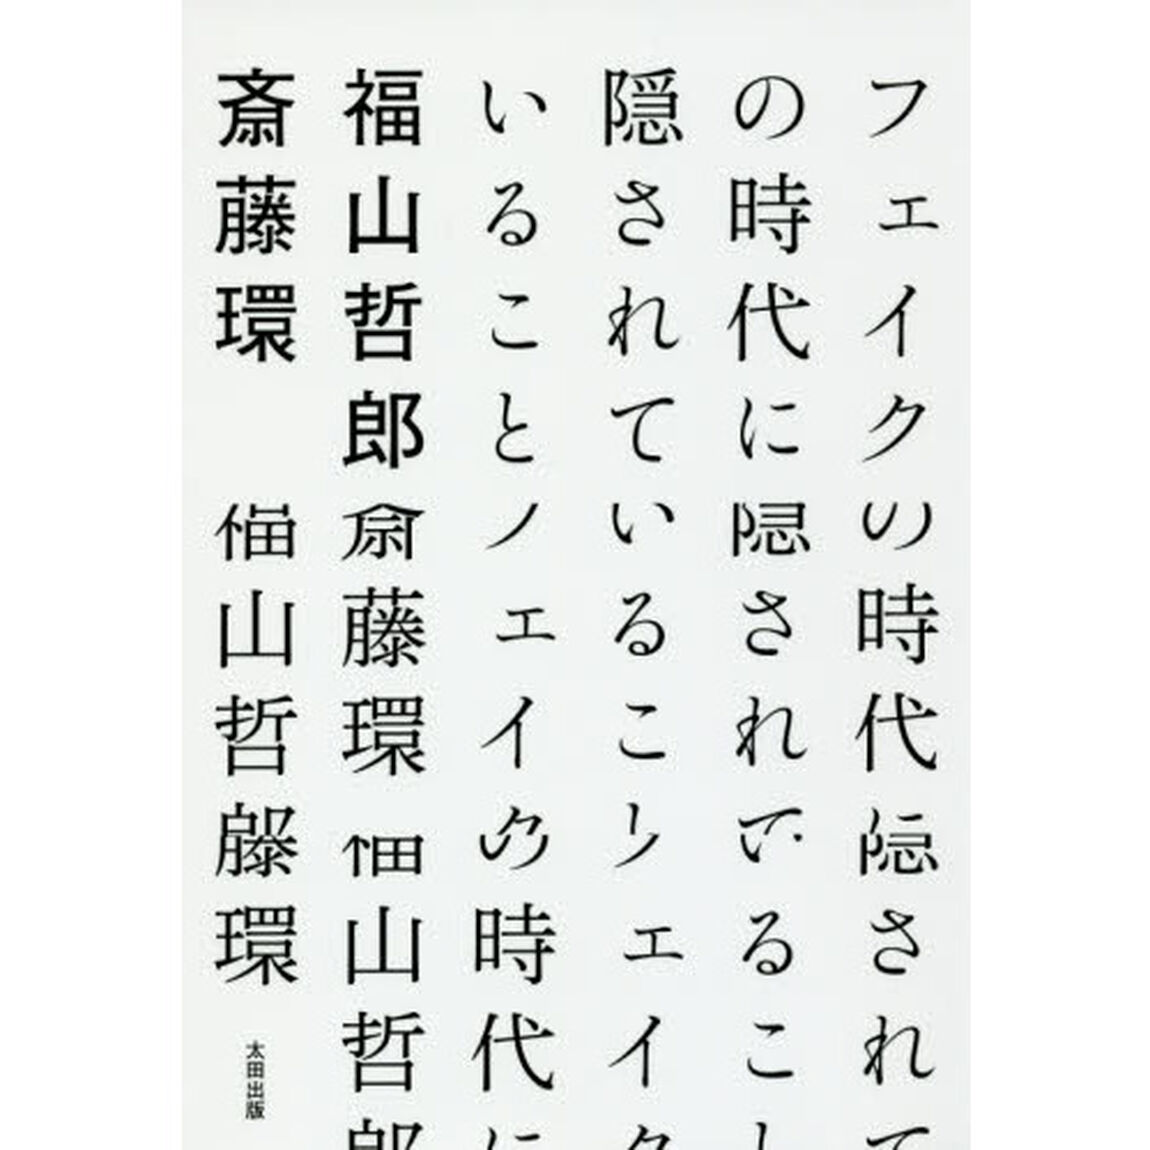 フェイク
の時代に
隠されて
いること
福山哲郎
斎藤環
の時代
されて
隠されて
いること
いること
フェイク
フェイク
の時代に
斎藤環
福山哲郎
福山哲
環
太田出版